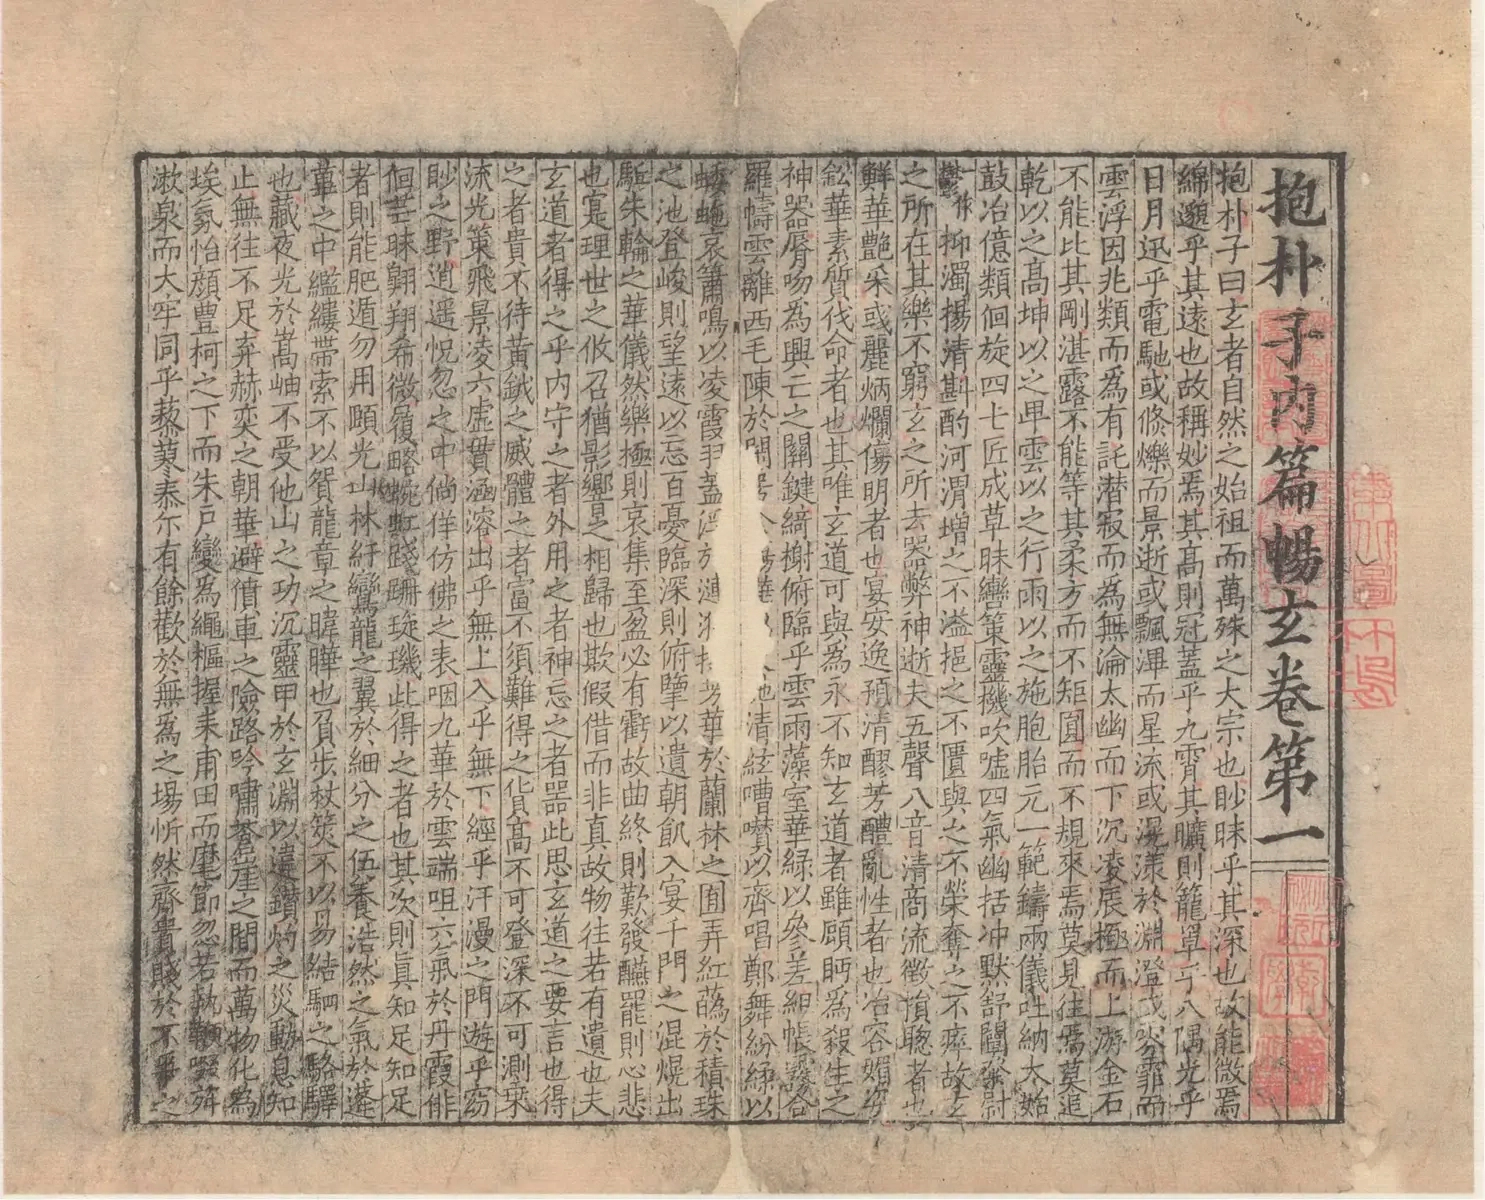 抱朴子内篇暢玄卷第一
抱朴子曰玄者自然之始祖而萬殊之大宗也眇昧乎其深也故能微焉
綿邈乎其遠也故稱妙焉其髙則冠蓋乎九霄其曠則籠罩乎八隅光乎
日月迅乎電馳或倏爍而景逝或飄滭而星流或滉漾於淵澄或雰霏而
雲浮因兆類而爲有託潜寂而爲無淪大幽而下沉凌辰極而上游金石
不能比其剛湛露不能等其柔方而不矩圓而不規來焉莫見徃焉莫追
乾以之髙坤以之甲雲以之行雨以之施胞胎元一範鑄兩儀吐納太始
鼓冶億類佪旋四七匠成草昧轡策靈機吹嘘四氣幽括冲默舒闡粲尉
一作鬱抑濁揚清斟酌河渭増之不溢挹之不匱與之不榮奪之不瘁故玄
之所在其樂不窮玄之所去器弊神逝夫五聲八音清商流徵損聦者也
鮮華艶采或麗炳爛傷明者也宴安逸預清醪芳醴亂性者也冶容媚姿
鈆華素質伐命者也其唯玄道可與爲永不知玄道者雖顧眄爲殺生之
神器脣吻爲興亡之關鍵綺榭俯臨乎雲雨藻室華緑以參差組帳霧合
羅幬雲離西毛陳於閒清絃嘈囋以齊唱鄭舞紛緑以
蜲蛇哀簫鳴以凌霞羽蓋浮華於蘭林之囿弄紅蘤於積珠
之池登峻則望遠以忘百憂臨深則俯擥以遺朝飢入宴千門之混熀出
駈朱輪之華儀然樂極則哀集至盈必有虧故曲終則歎發醼罷則心悲
也寔理世之攸召猶影響之相歸也欺假借而非真故物徃若有遺也夫
玄道者得之乎内守之者外用之者神忘之者器此思玄道之要言也得
之者貴不待黄鉞之威體之者富不須難得之貨髙不可登深不可測乘
流光策飛景凌六虚貫涵溶出乎無上入乎無下經乎汗漫之門遊乎窈
眇之野逍遥怳忽之中倘佯仿佛之表咽九華於雲端咀六氣於丹霞俳
佪茫昧翺翔希微履略蜿虹踐跚琁璣此得之者也其次則眞知足知足
者則能肥遁勿用頤光山林紆鸞龍之翼於細分之伍養浩然之氣於蓬
蓽之中繿縷帶索不以貿龍章之暐曄也負步杖筴不以昜結駟之駱驛
也藏夜光於嵩岫不受他山之功沉靈甲於玄淵以遺鑽灼之災動息知
止無徃不足弃赫奕之朝華避僨車之險路吟嘯蒼崖之間而萬物化爲
埃氛怡顔豊柯之下而朱戸變爲繩樞握耒甫田而麾節忽若執鞭啜荈
漱泉而太牢同乎藜藿泰尓有餘歡於無爲之塲忻然齊貴賤於不爭之